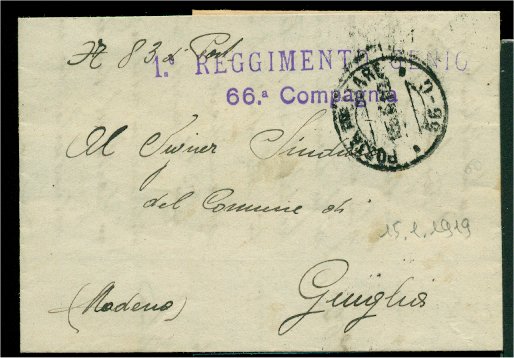 N 83 di Prot
1.º REGGIMENTO GENIO
66.ª Compagnia
POSTA MILITARE
Al Signor Sindaco
del Comune di
15.1.1919
Guiglia
(Modena)